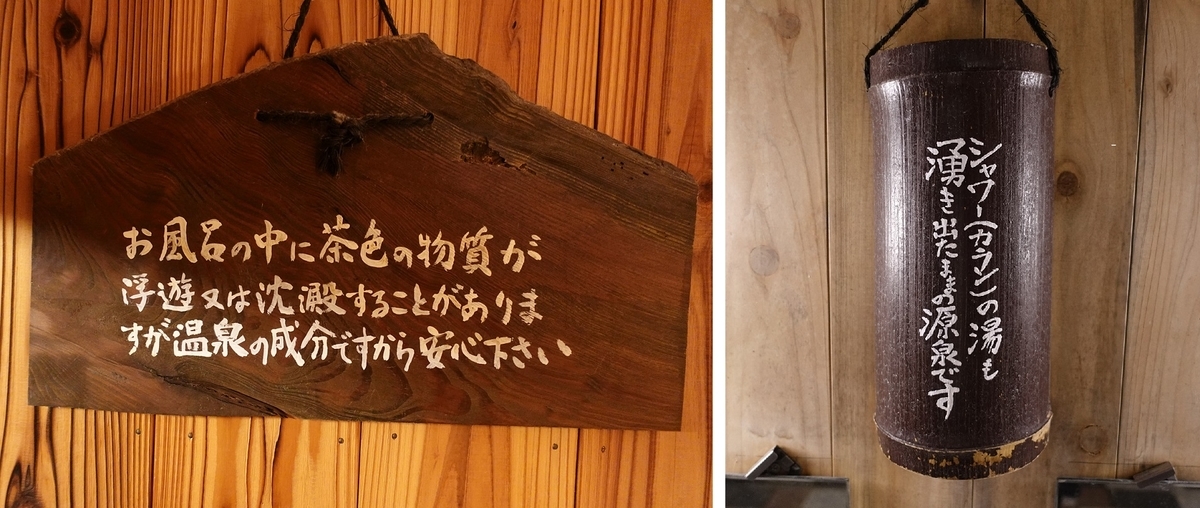 お風呂の中に茶色の物質が
浮遊又は沈澱することがありま
すが温泉の成分ですから安心下さい
シャワー(カラン)の湯も
湧き出たままの源泉です